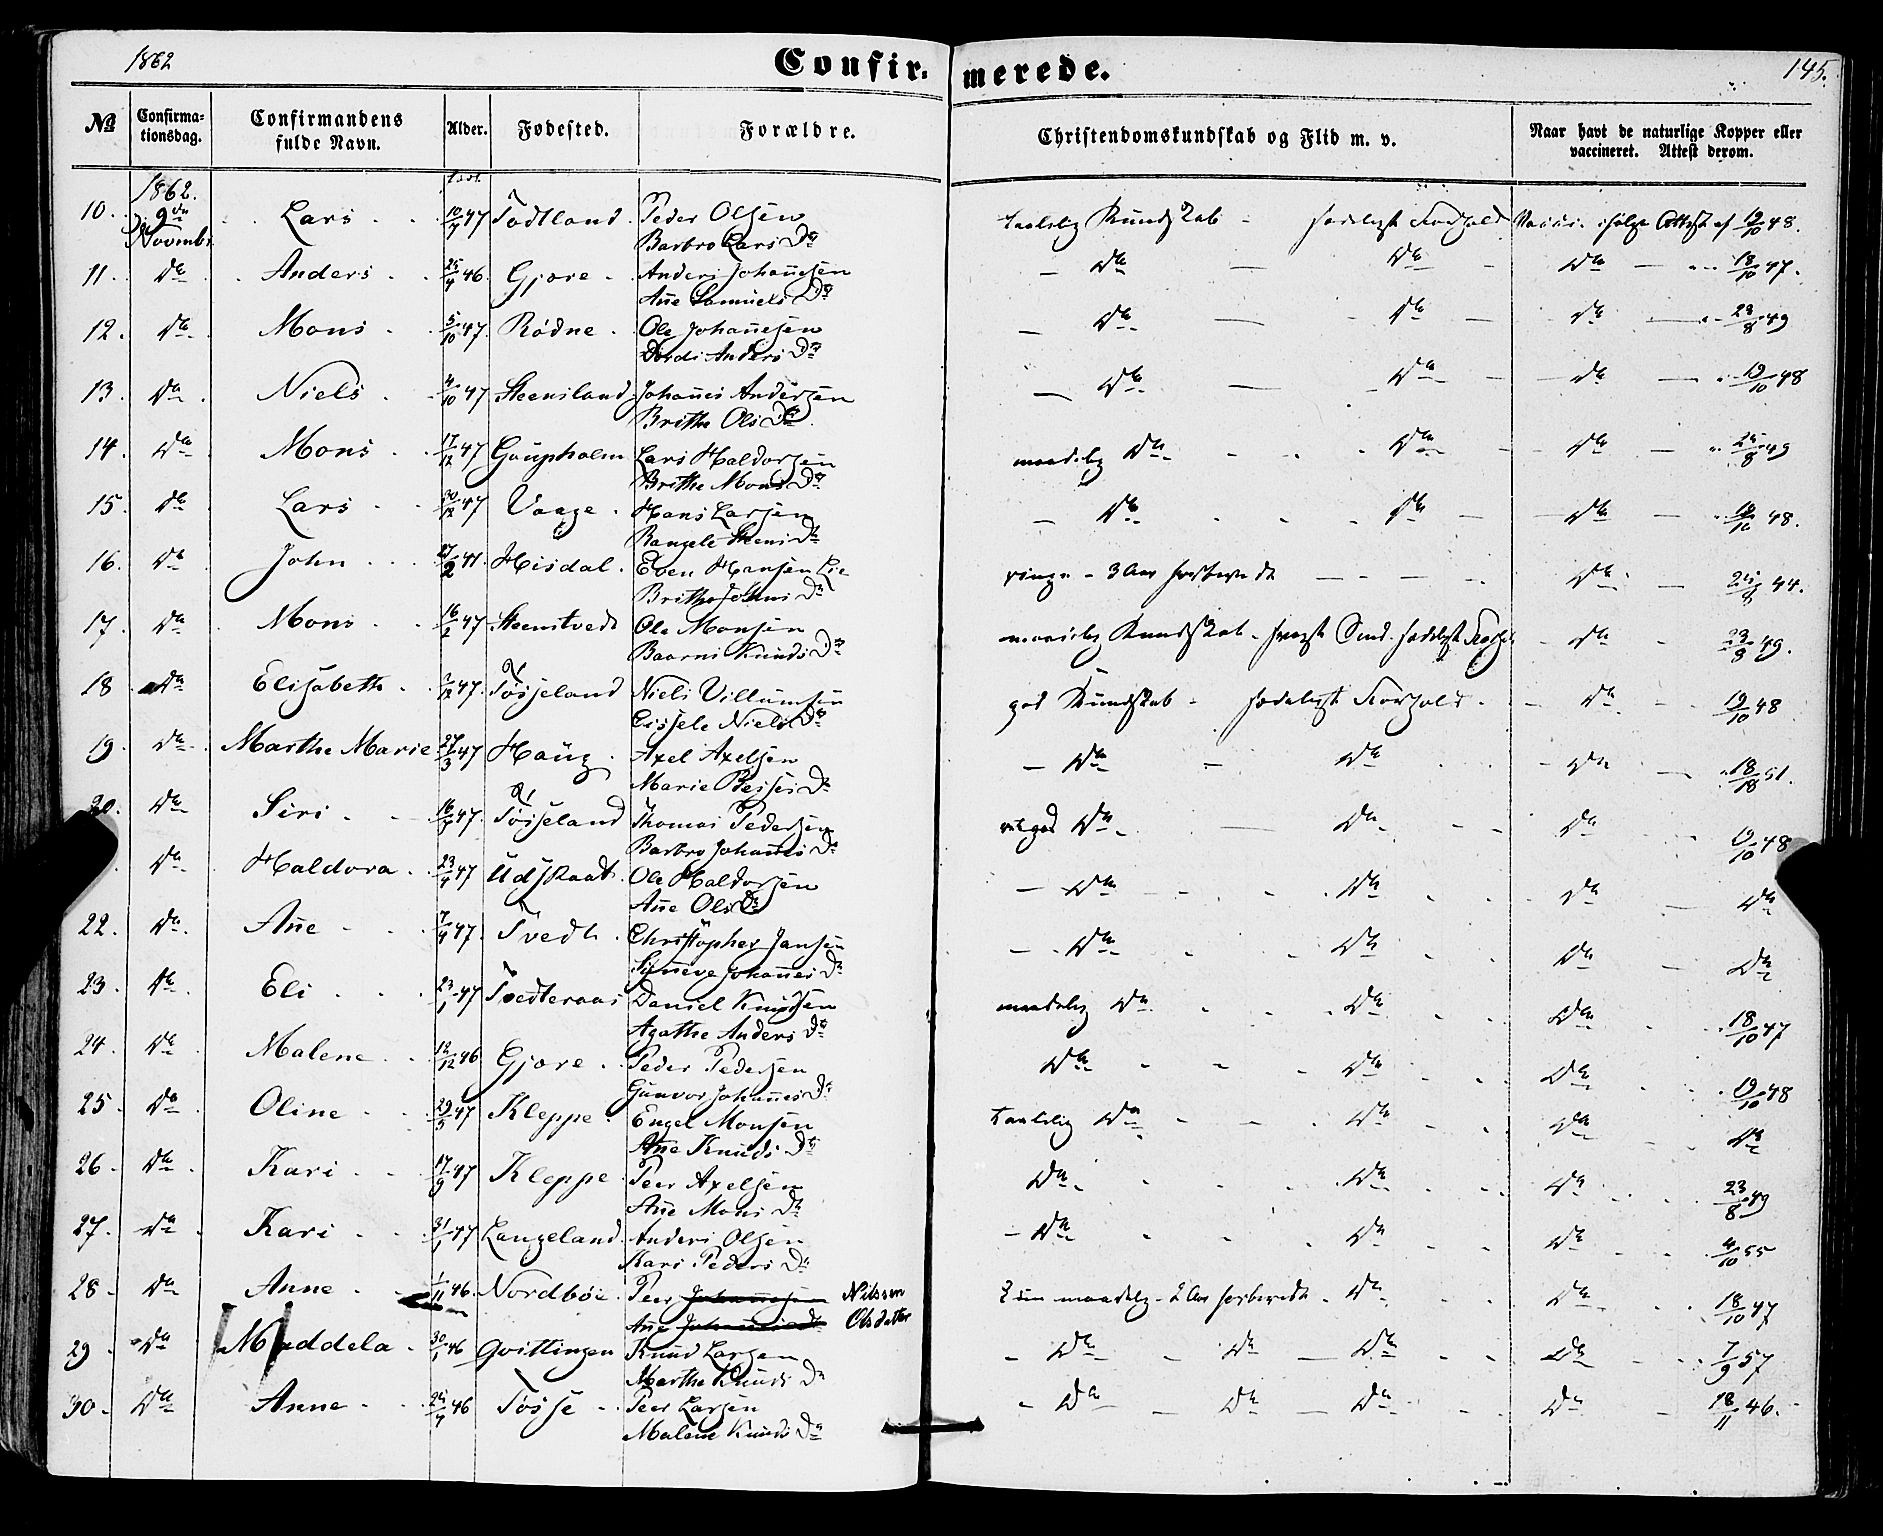 1862
Confir-merede.
145.
№
Confirma-
tionsdag.
Confirmandens
fulde Navn.
Alder.
Fødested.
Forældre.
Christendomskundskab og Flid m. v.
Naar havt de naturlige Kopper eller
vaccineret. Attest derom.
1862.
10. 9de Novembr Lars 10/7 47 Todtland Peder Olsen taalelig Kundskab - sædeligt Forhold Vacci. ifølge Attest af 19/10 48.
Barbro Lars Dr
11. Do Anders 25/4 46. Gjøre Anders Johannesen Do Do Do 18/10 47.
Ane Samuels Dr
12. Do Mons 5/10 47. Rødne Ole Johannesen Do Do Do 23/8 49
Dordi Anders Dr
13. Do Niels 4/10 47 Steensland Johannes Andersen Do Do Do 19/10 48
Brithe Ols Dr
14. Do Mons 17/12 47 Gaupholm Lars Haldorsen maadelig Do Do Do 23/8 49
Brithe Mons Dr
15. Do Lars 30/12 47 Vaage Hans Larsen Do Do Do 19/10 48.
Rangele Steens Dr
16. Do John 27/2 41. Hisdal Even Hansen Lie ringe - 3 Aar forberedt Do 44.
Brithe Johns Dr
17. Do Mons 16/2 47 Steenstvedt Ole Monsen maadelig Kundskab - svagt Sind. sædeligt Forhold Do 23/8 49.
Baarni Knuds Dr
18 Do Elisabeth 47. Tøsseland Niels Villumsen god Kundskab - sædeligt Forhold Do 19/10 48
Cissele Niels Dr
19. Do Marthe Marie 27/3 47 Haug Axel Axelsen Do Do Do 18/10 51.
Marie Dr
20. Do Siri 16/7 47. Tøsseland Thomas Pedersen god Do Do Do 19/10 48
Barbro Johannes Dr
Do Haldora 23/4 47 Udskaat Ole Haldorsen Do Do Do Do
Ane Ols Dr
22. Do Ane 7/4 47. Tvedt Christopher Jansen Do Do Do Do
Synneve Johannes Dr
23. Do Eli 23/1 47 Tvedteraas Daniel Knudsen maadelig Do Do Do 18/10 47
Agathe Anders Dr
24. Do Malene 12/12 46 Gjøre Peder Pedersen Do Do Do 19/10 48
Gunvor Johannes Dr
25. Do Oline 29/5 47 Kleppe Engel Monsen taalelig Do Do Do Do
Ane Knuds Dr
26. Do Kari 17/9 47 Kleppe Peer Axelsen Do Do Do 23/8 49
Ane Mons Dr
27. Do Kari 31/1 47 Langeland Anders Olsen Do Do Do 4/10 55
Kari Peders Dr
28. Do Anne 1/11 46. Nordbøe Peer Johannesen Nilssen maadelig - 2 Aar forberedt Do Do 18/10 47
Ane Johannesdr Olsdatter
29. Do Maddela 30/1 46 Qvittingen Knud Larsen Do Do Do Do 7/9 57
Marthe Knuds Dr
30. Do Anne 46 Tøsse Peer Larsen Do Do Do Do 18/11 46.
Malene Knuds Dr